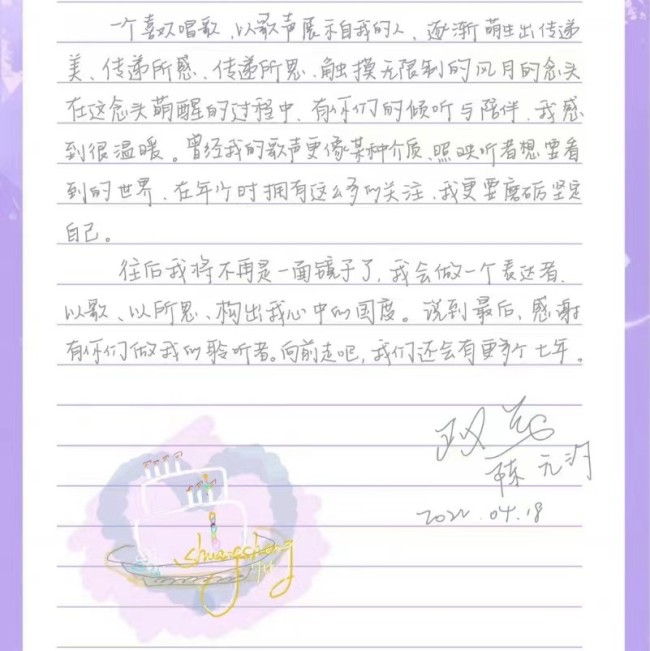 一个喜欢唱歌、以歌声展示自我的人，逐渐萌生出传递
美、传递所感、传递所思、触摸无限制的风月的念头
在这念头萌醒的过程中，有你们的倾听与陪伴，我感
到很温暖。曾经我的歌声更像某种介质、照映听者想要看
到的世界、在年少时拥有这么多的关注，我更要磨砺坚定
自己。
往后我将不再是一面镜子了，我会做一个表达者，
以歌、以所思、构出我心中的国度。说到最后，感谢
有你们做我的聆听者。向前走吧，我们还会有更多个七年。
双笙
陈元汐
2022.04.18
shuangsheng
7th